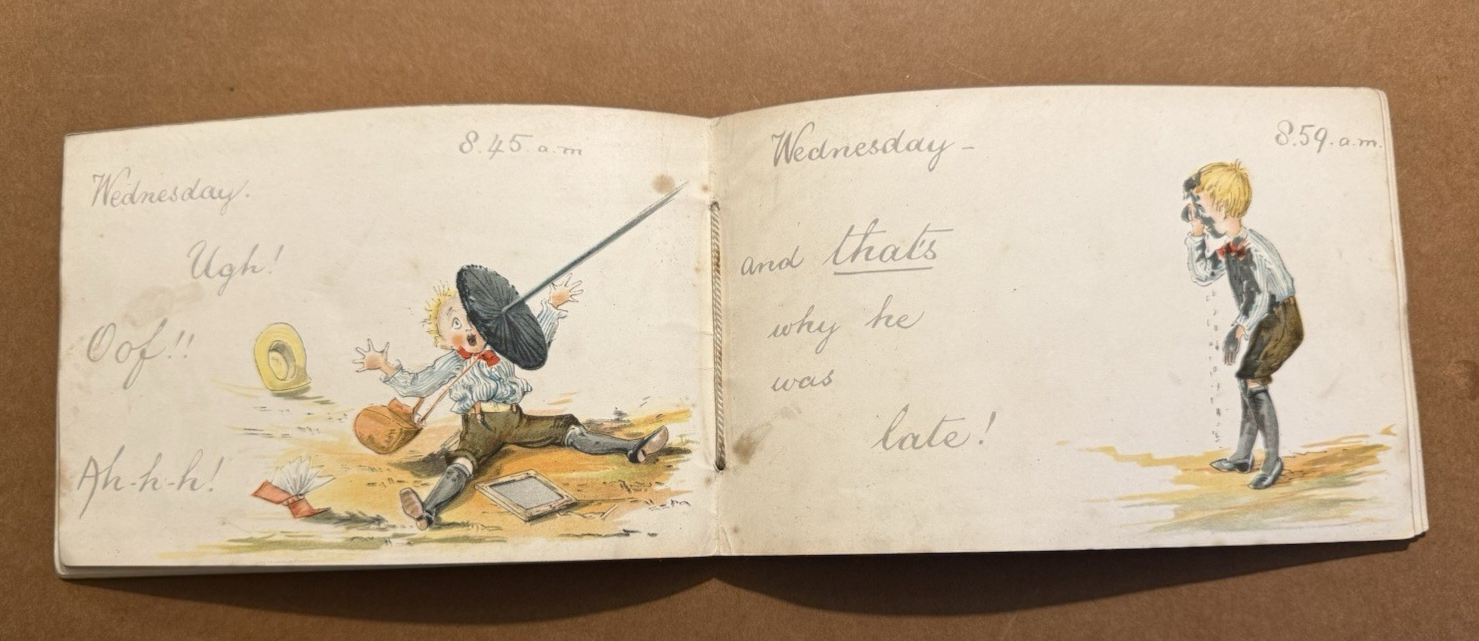 8.45.a.m
Wednesday.
Ugh!
Oof!!
Ah-h-h!
Wednesday-
8.59.a.m.
and that's
why he
was
late!